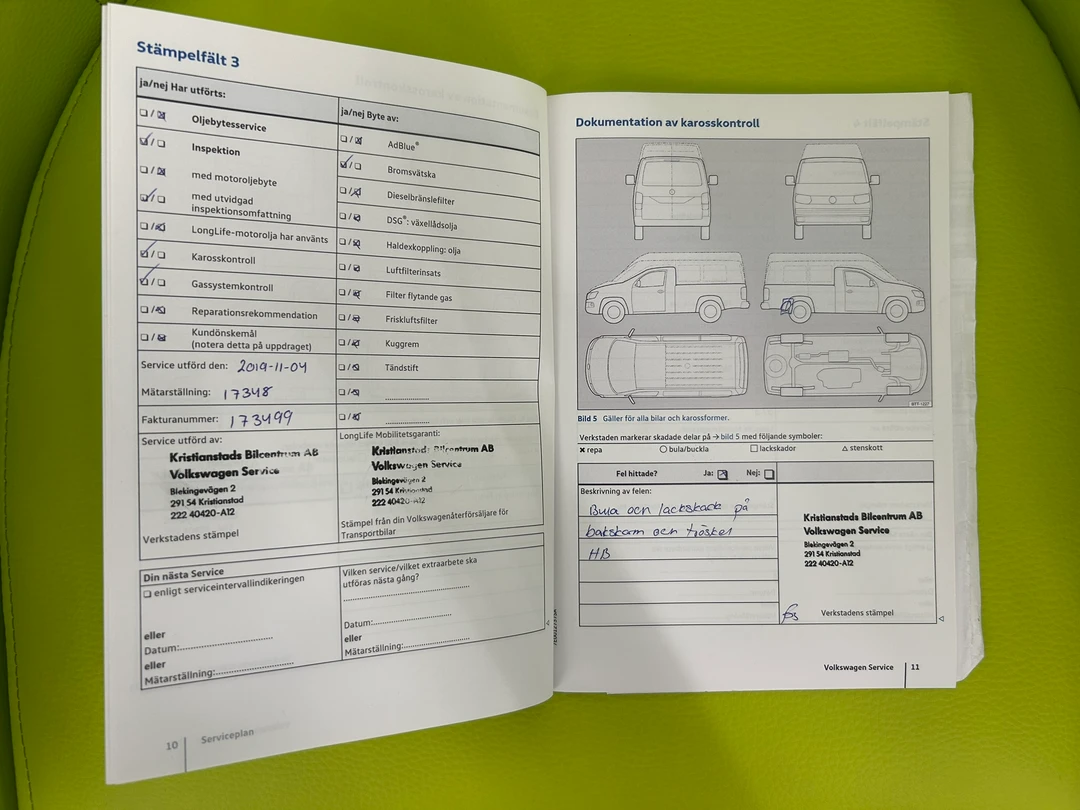 Stämpelfält 3
ja/nej Har utförts:
Oljebytesservice
Inspektion
med motoroljebyte
med utvidgad
inspektionsomfattning
LongLife-motorolja har använts
Karosskontroll
Gassystemkontroll
Reparationsrekommendation
Kundönskemål
(notera detta på uppdraget)
ja/nej Byte av:
AdBlue®
Bromsvätska
Dieselbränslefilter
DSG®: växellådsolja
Haldexkoppling: olja
Luftfilterinsats
Filter flytande gas
Friskluftsfilter
Kuggrem
Tändstift
Service utförd den: 2019-11-04
Mätarställning: 17348
Fakturanummer: 173499
Service utförd av:
Kristianstads Bilcentrum AB
Volkswagen Service
Blekingevägen 2
291 54 Kristianstad
222 40420-A12
Verkstadens stämpel
LongLife Mobilitetsgaranti:
Kristianstads Bilcentrum AB
Volkswagen Service
Blekingevägen 2
291 54 Kristianstad
222 40420-A12
Stämpel från din Volkswagenåterförsäljare för
Transportbilar
Din nästa Service
enligt serviceintervallindikeringen
eller
Datum:
eller
Mätarställning:
Vilken service/vilket extraarbete ska
utföras nästa gång?
Datum:
eller
Mätarställning:
10 Serviceplan
Dokumentation av karosskontroll
Bild 5 Gäller för alla bilar och karossformer.
Verkstaden markerar skadade delar på → bild 5 med följande symboler:
✖ repa ○ bula/buckla □ lackskador △ stenskott
Fel hittade? Ja: Nej:
Beskrivning av felen:
Bula och lackskada på
bakskärm och tröskel
HB
Kristianstads Bilcentrum AB
Volkswagen Service
Blekingevägen 2
291 54 Kristianstad
222 40420-A12
Verkstadens stämpel
Volkswagen Service 11